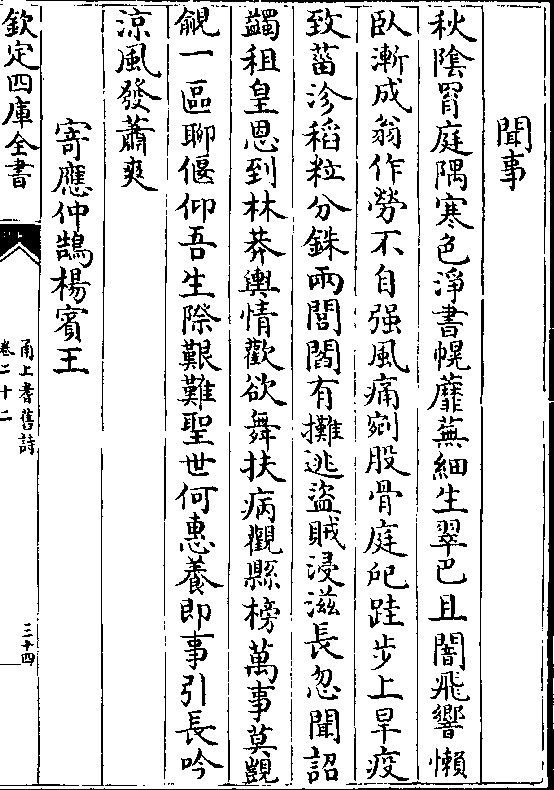 聞事
秋陰罥庭隅寒色淨書幌蘼蕪細生翠巴且闇飛響懶
臥漸成翁作勞不自强風痛剜股骨庭戺跬步上旱疫
致葘沴稻粒分銖兩閭閻有攤逃盜賊浸滋長忽聞詔
蠲租皇恩到林莽輿情歡欲舞扶病觀縣榜萬事莫覬
覦一區聊偃仰吾生際艱難聖世何惠養即事引長吟
涼風發蕭爽
寄應仲鵠楊賓王
欽定四庫全書
甬上耆舊詩
卷二十二
三十四